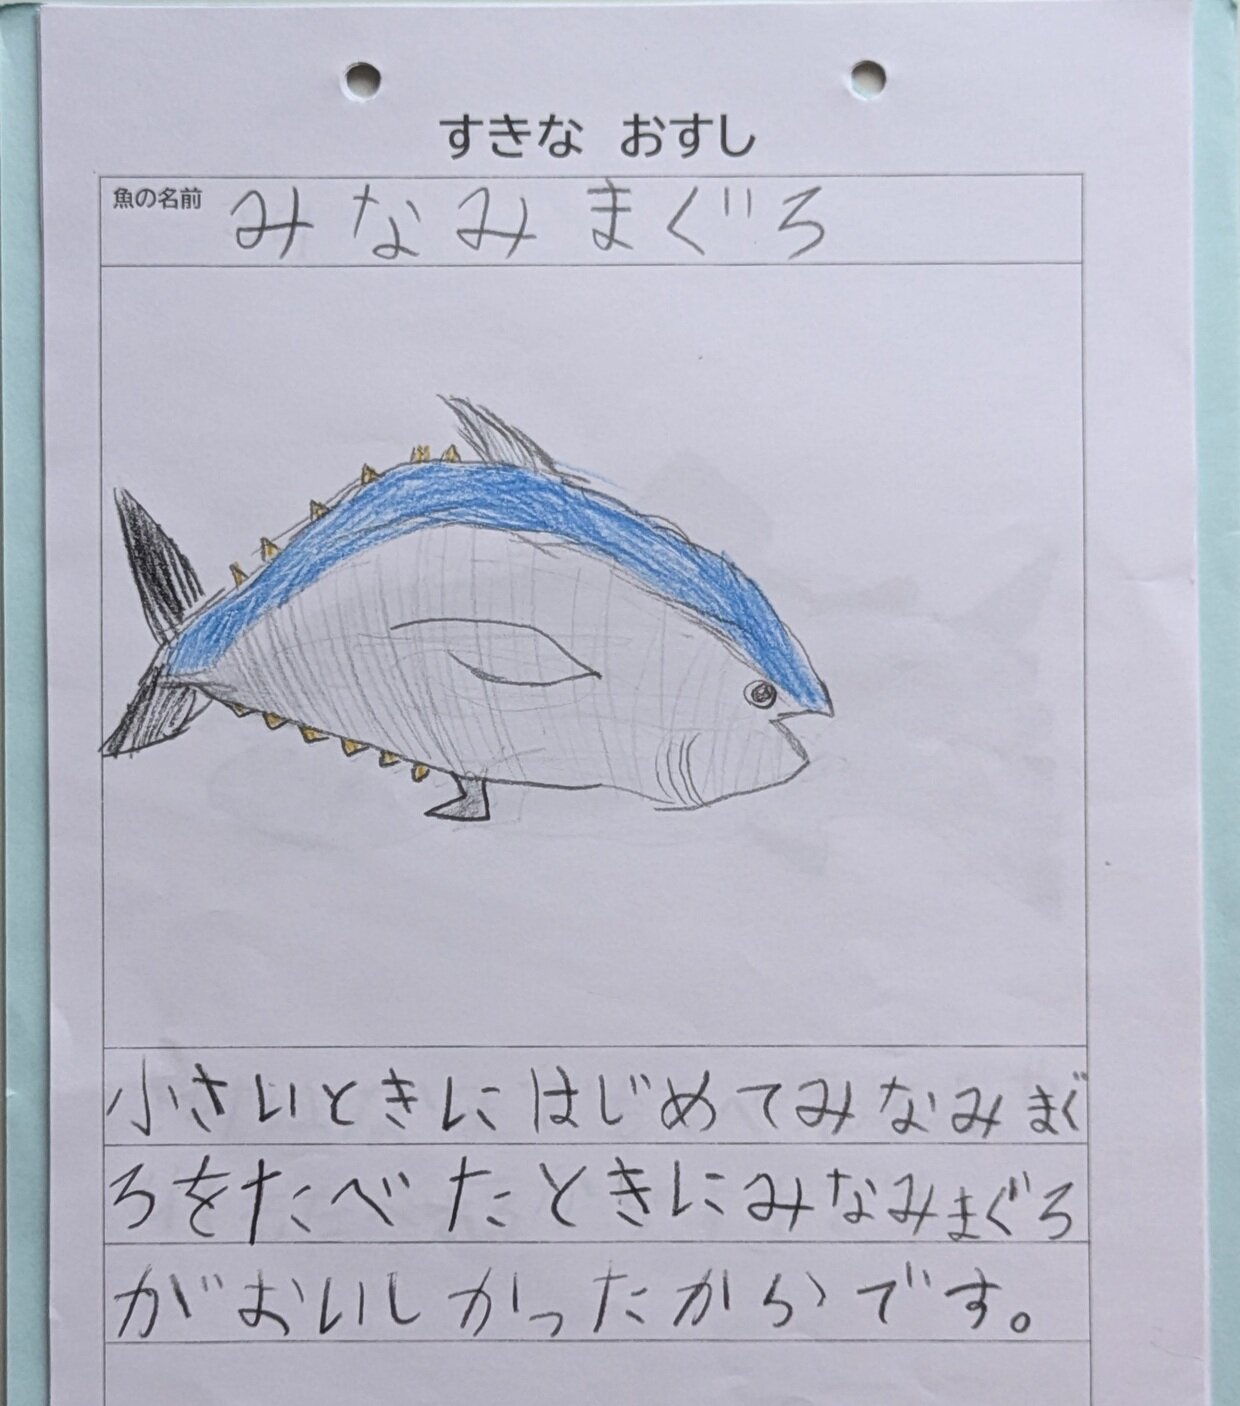 すきな おすし
魚の名前 みなみまぐろ
小さいときにはじめてみなみまぐ
ろをたべたときにみなみまぐろ
がおいしかったからです。